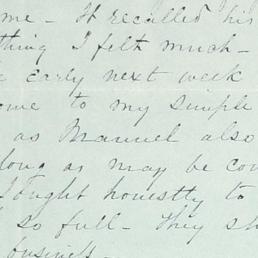 me - It recalled his
thing I felt much -
early next week
ome to my simple
as Manuel also
long as may be con
ought honestly to
so full - They sh
business -